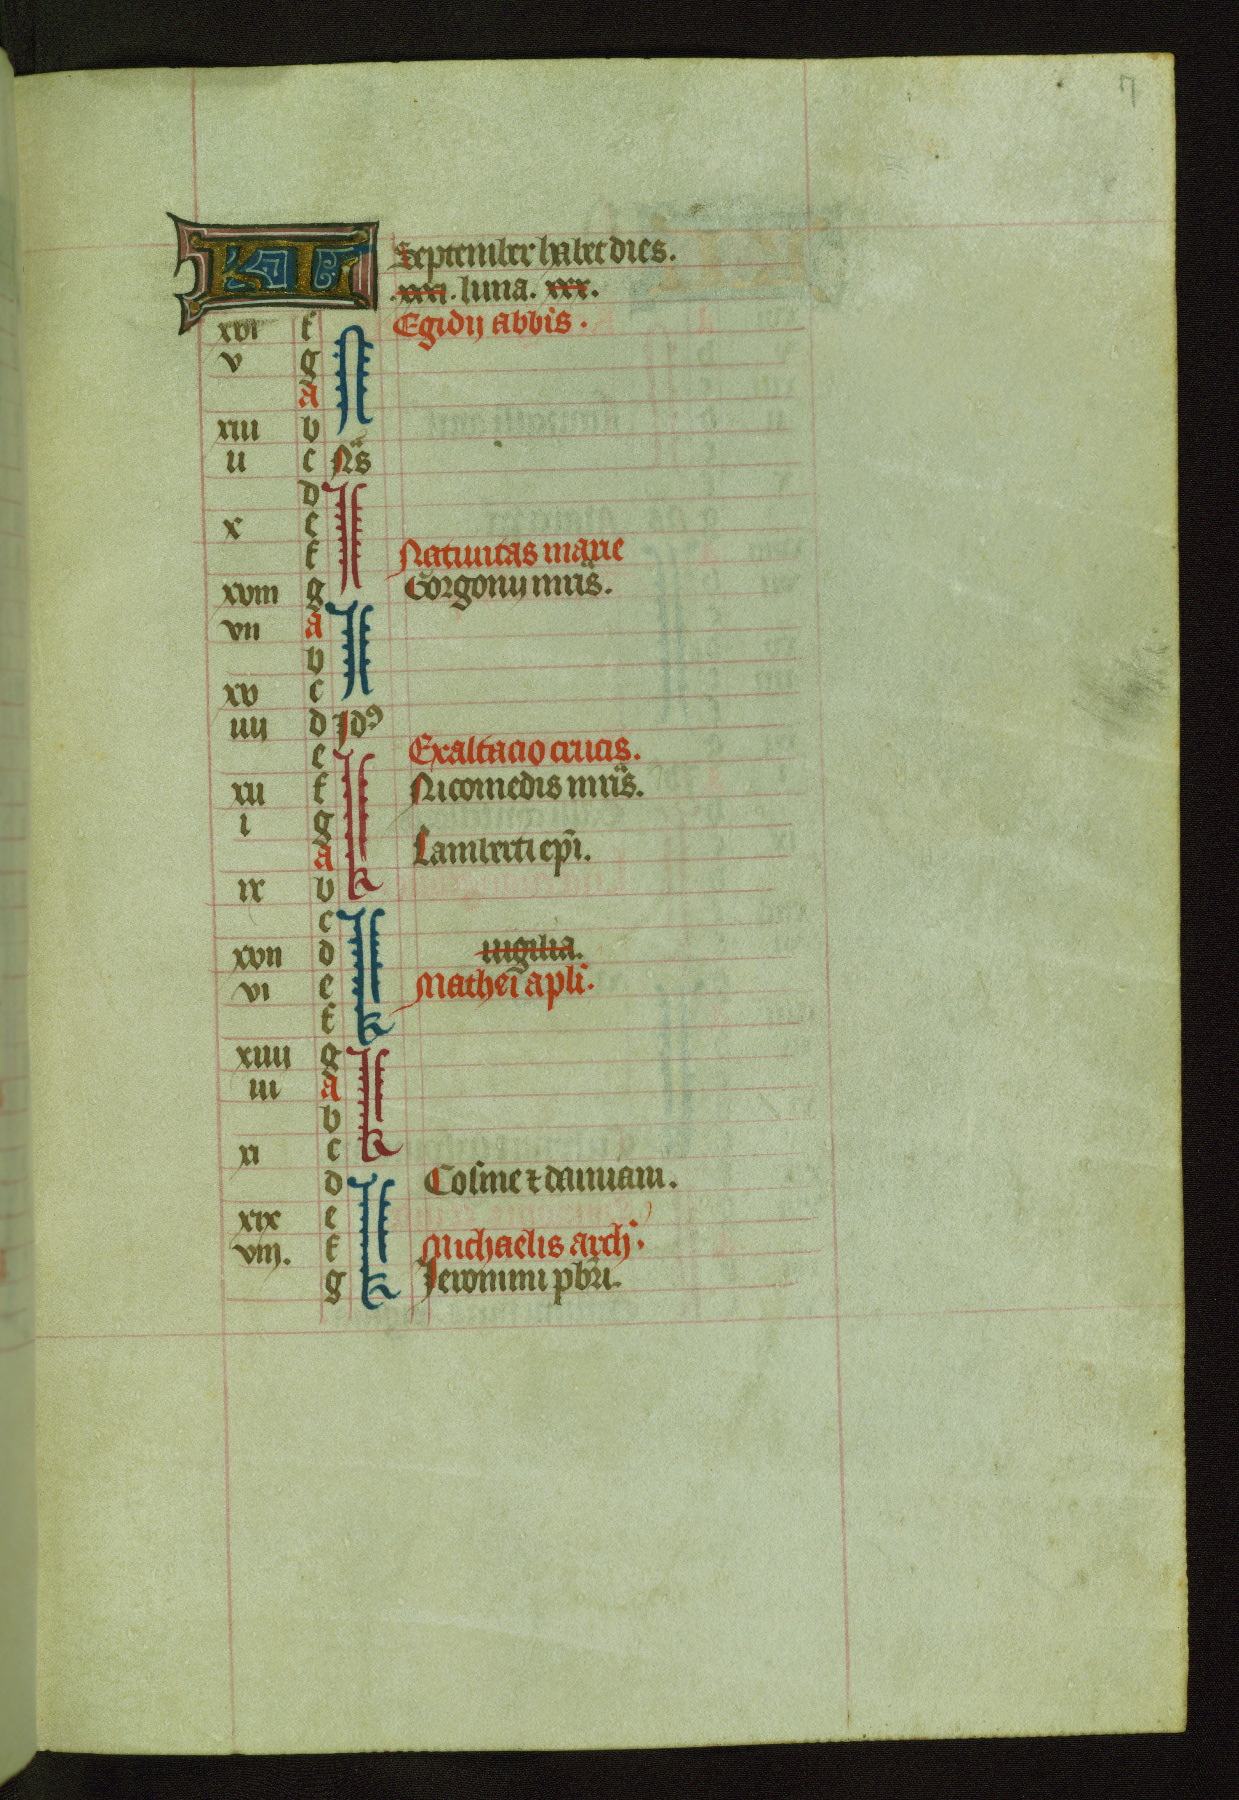 7
KL September habet dies.
.xxxi. luna. xxx.
xvi f N Egidij abbis.
v g
a
xiii b
ii c Ns
d I
x e
f Natiuitas marie
xviii g Gorgonij mris.
vii a I
b
xv c
iiii d Jdꝰ
e I Exaltacio crucis.
xii f Nicomedis mris.
i g
a Lamberti epi.
ix b k
c I
xvii d uigilia.
vi e Mathei apli.
f k
xiiii g I
iii a
b
xi c k
d I Cosme ⁊ damiani.
xix e
viij. f Michaelis arch.
g k Jeronimi pbri.